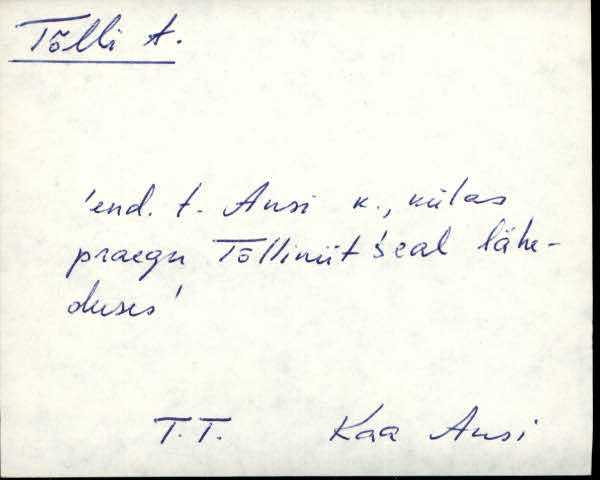 Tõlli t.
'end. t. Ansi k., külas
praegu Tõlliniit seal lähe-
duses'
T.T. Kaa Ansi